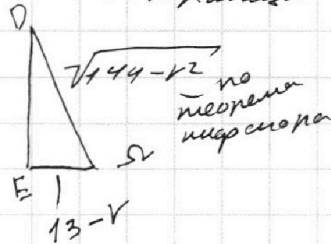 D
√144-r²
по
теорема
пифагора
E
Ω
13-r